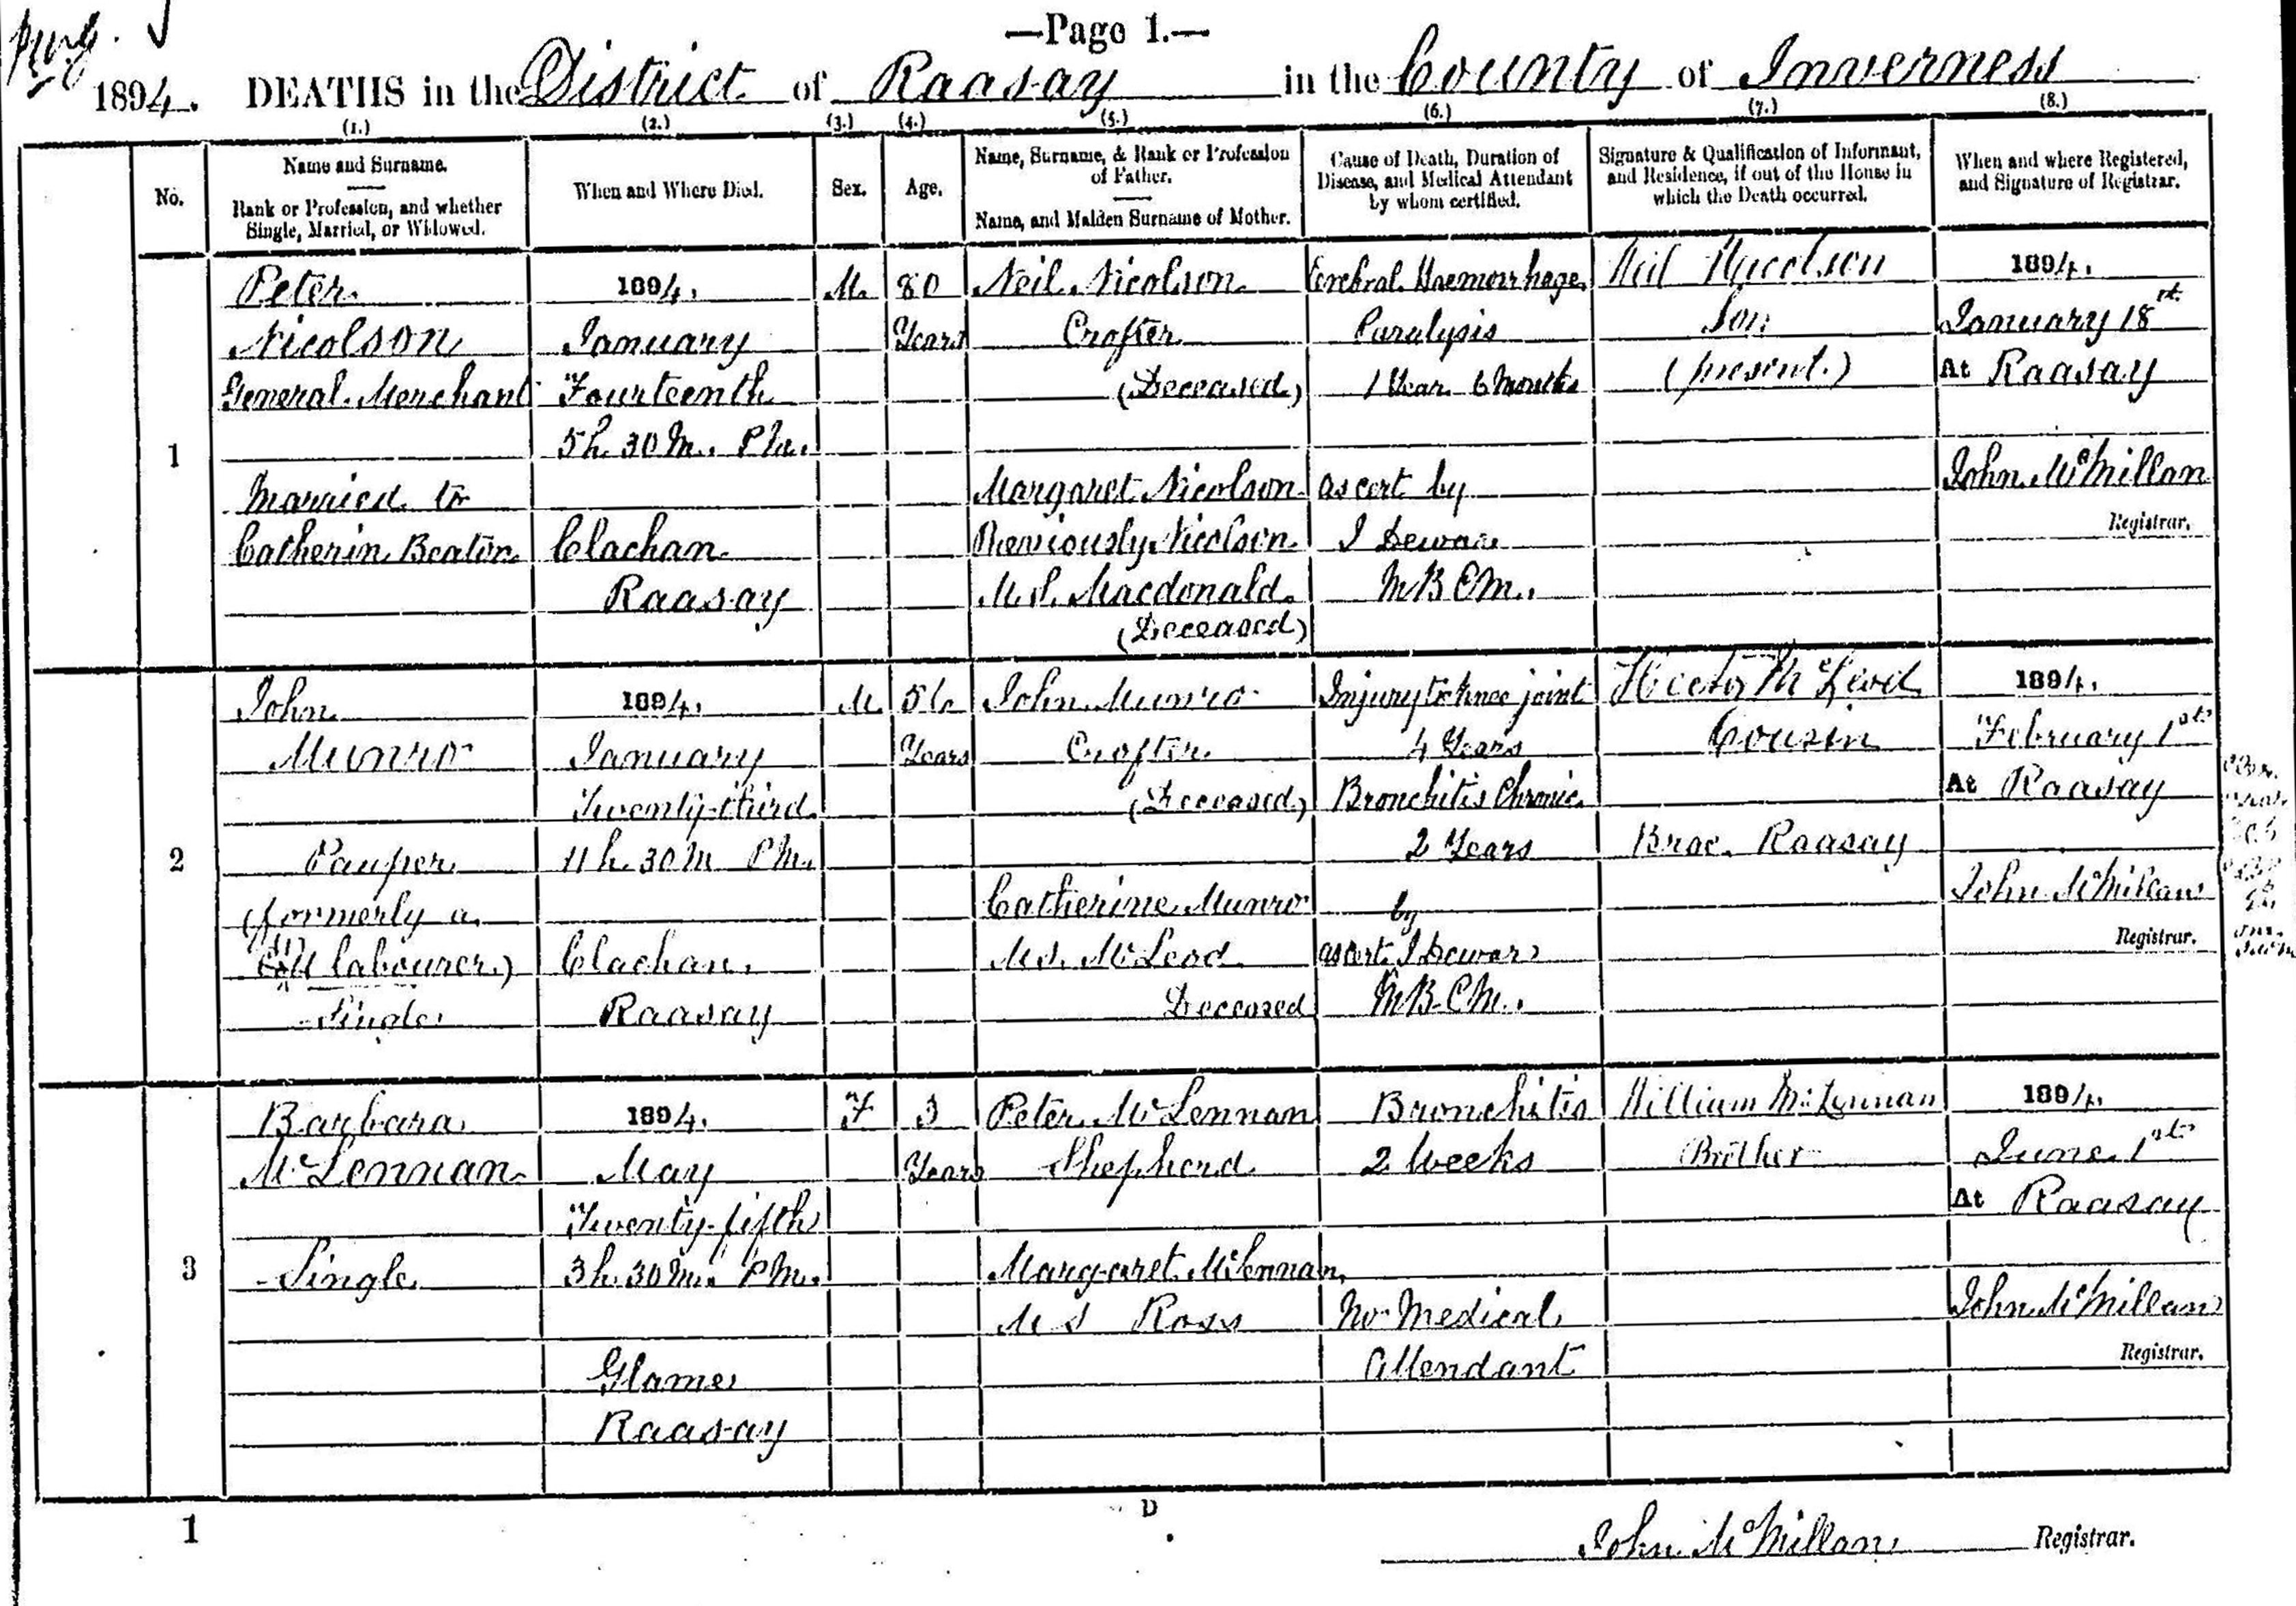 —Page 1.—
1894. DEATHS in the District of Raasay in the County of Inverness
(1.) (2.) (3.) (4.) (5.) (6.) (7.) (8.)
No.
Name and Surname.
Rank or Profession, and whether
Single, Married, or Widowed.
When and Where Died.
Sex.
Age.
Name, Surname, & Rank or Profession
of Father.
Name, and Maiden Surname of Mother.
Cause of Death, Duration of
Disease, and Medical Attendant
by whom certified.
Signature & Qualification of Informant,
and Residence, if out of the House in
which the Death occurred.
When and where Registered,
and Signature of Registrar.
1
Peter
Nicolson
General Merchant
Married to
Catherin Beaton
1894.
January
Fourteenth
5h. 30m. P.M.
Clachan
Raasay
M.
80
Years
Neil Nicolson
Crofter
(Deceased)
Margaret Nicolson
Previously Nicolson
M.S. Macdonald.
(Deceased)
Cerebral Haemorrhage
Paralysis
1 Year 6 Months
as cert by
J Dewar
M B C M.
Neil Nicolson
Son
(present.)
1894.
January 18th
At Raasay
John McMillan
Registrar.
2
John
Munro
Pauper
(formerly a
labourer)
Single
1894.
January
Twenty-third
11h. 30m P.M.
Clachan.
Raasay
M.
56
Years
John Munro
Crofter
(Deceased)
Catherine Munro
M.S. McLeod
Deceased
Injury to knee joint
4 Years
Bronchitis Chronic
2 Years
by
as cert. J Dewar
M B. C M.
Hector McLeod
Cousin
Brae. Raasay
1894.
February 1st
At Raasay
John McMillan
Registrar.
3
Barbara
McLennan
Single
1894.
May
Twenty-fifth
3h. 30m. P.M.
Glame
Raasay
F
3
Years
Peter McLennan
Shepherd
Margaret McLennan
M S Ross
Bronchitis
2 Weeks
No Medical
Attendant
William McLennan
Brother
1894.
June 1st
At Raasay
John McMillan
Registrar.
1
D
John McMillan Registrar.